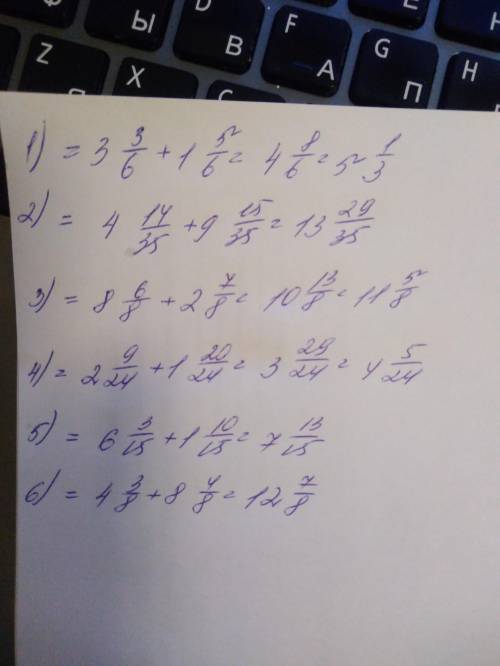 Ф Ы D В F А G П Н
Z Я X Ч
1) = 3 3/6 + 1 5/6 = 4 8/6 = 5 1/3
2) = 4 14/35 + 9 15/35 = 13 29/35
3) = 8 6/8 + 2 7/8 = 10 13/8 = 11 5/8
4) = 2 9/24 + 1 20/24 = 3 29/24 = 4 5/24
5) = 6 3/15 + 1 10/15 = 7 13/15
6) = 4 3/8 + 8 4/8 = 12 7/8